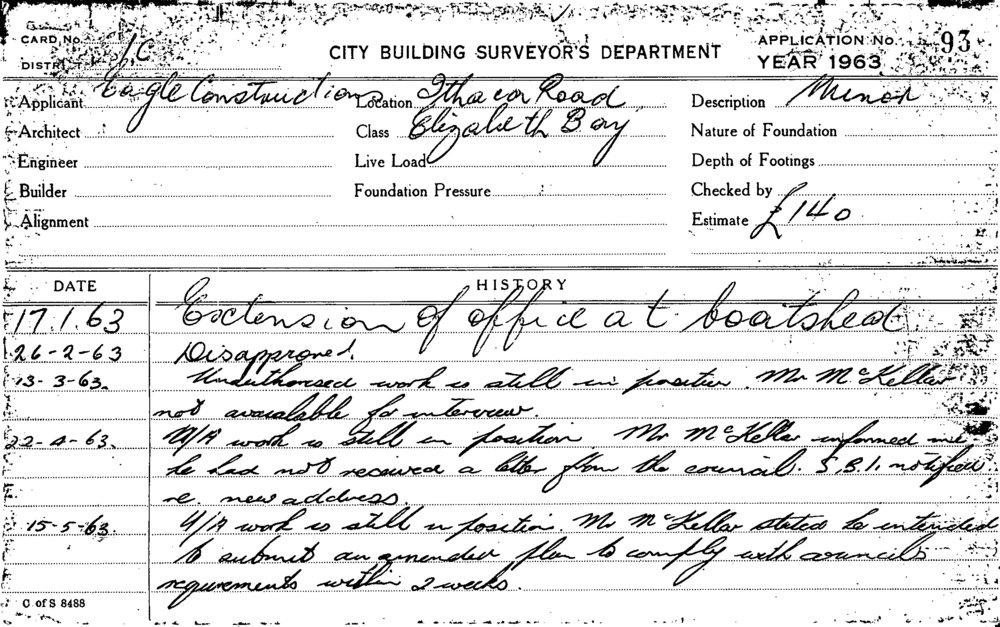 CARD No.
CITY BUILDING SURVEYOR'S DEPARTMENT
APPLICATION No. 93
DISTRICT
YEAR 1963
Applicant Eagle Constructions Location Ithaca Road Description Minor
Architect Class Elizabeth Bay Nature of Foundation
Engineer Live Load Depth of Footings
Builder Foundation Pressure Checked by
Alignment Estimate £140
DATE HISTORY
17.1.63 Extension of office at boatshed
26-2-63 Disapproved.
13-3-63. Unauthorised work is still in position. Mr McKellar
not available for interview.
22-4-63. U/A work is still in position. Mr McKellar informed me
he had not received a letter from the council. S.B.I. notified
re. new address.
15-5-63. U/A work is still in position. Mr McKellar stated he intended
to submit an amended plan to comply with councils
requirements within 2 weeks.
C of S 8488